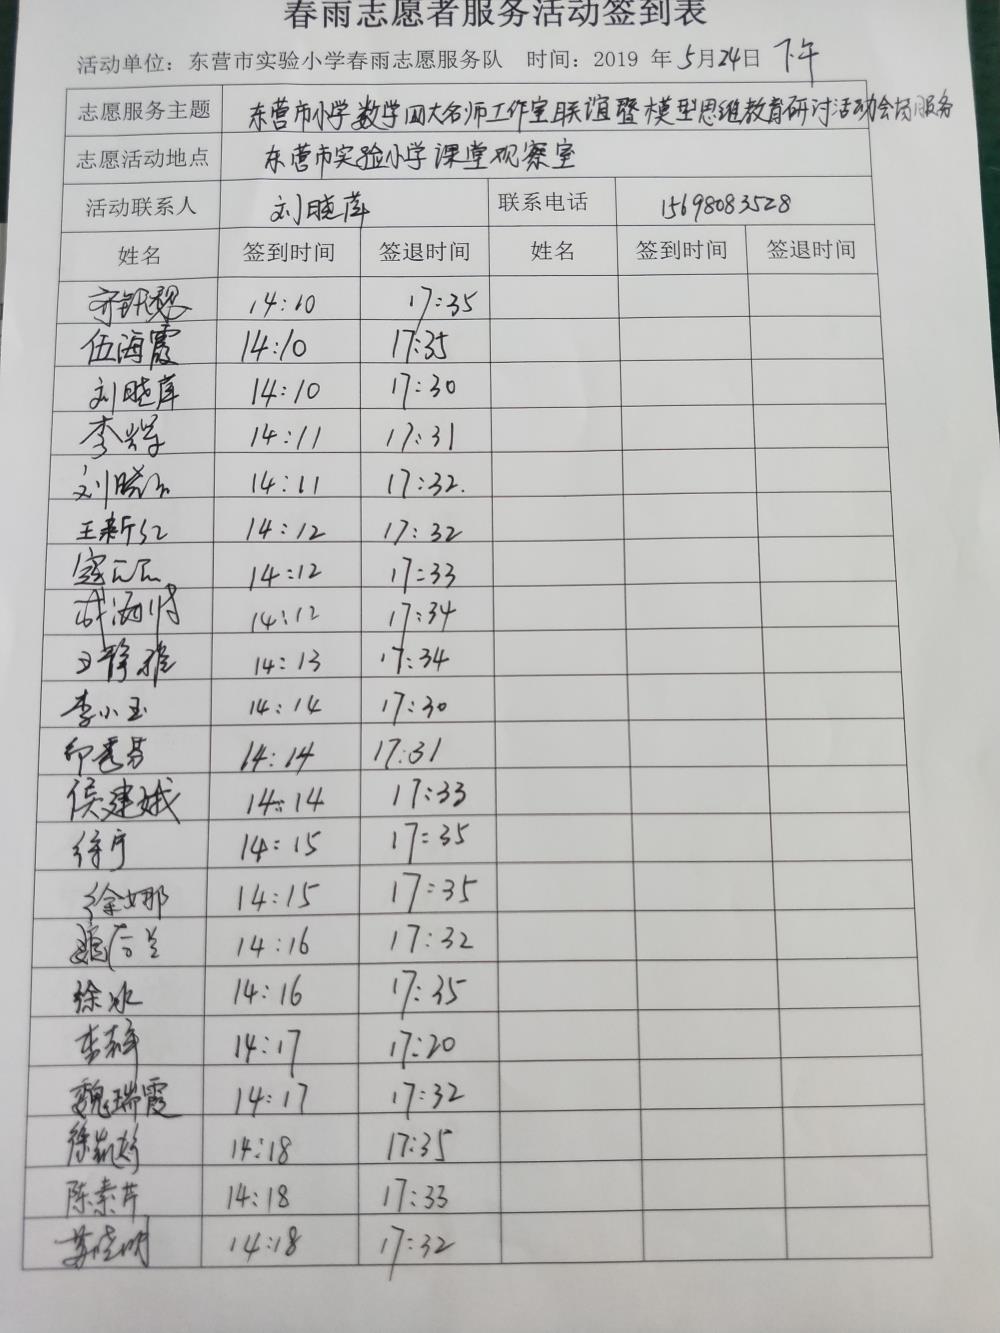 春雨志愿者服务活动签到表
活动单位：东营市实验小学春雨志愿服务队 时间：2019 年5月24日 下午
志愿服务主题 东营市小学数学四大名师工作室联谊暨模型思维教育研讨活动会场服务
志愿活动地点 东营市实验小学课堂观察室
活动联系人 刘晓萍 联系电话 15698083528
姓名 签到时间 签退时间 姓名 签到时间 签退时间
14:10 17:35
伍海霞 14:10 17:35
刘晓萍 14:10 17:30
李翠 14:11 17:31
刘晓 14:11 17:32.
王新红 14:12 17:32
14:12 17:33
14:12 17:34
静雅 14:13 17:34
李小玉 14:14 17:30
印秀芬 14:14 17:31
侯建娥 14:14 17:33
徐宁 14:15 17:35
徐娜 14:15 17:35
14:16 17:32
徐冰 14:16 17:35
14:17 17:20
魏瑞霞 14:17 17:32
徐 14:18 17:35
陈素芹 14:18 17:33
14:18 17:32